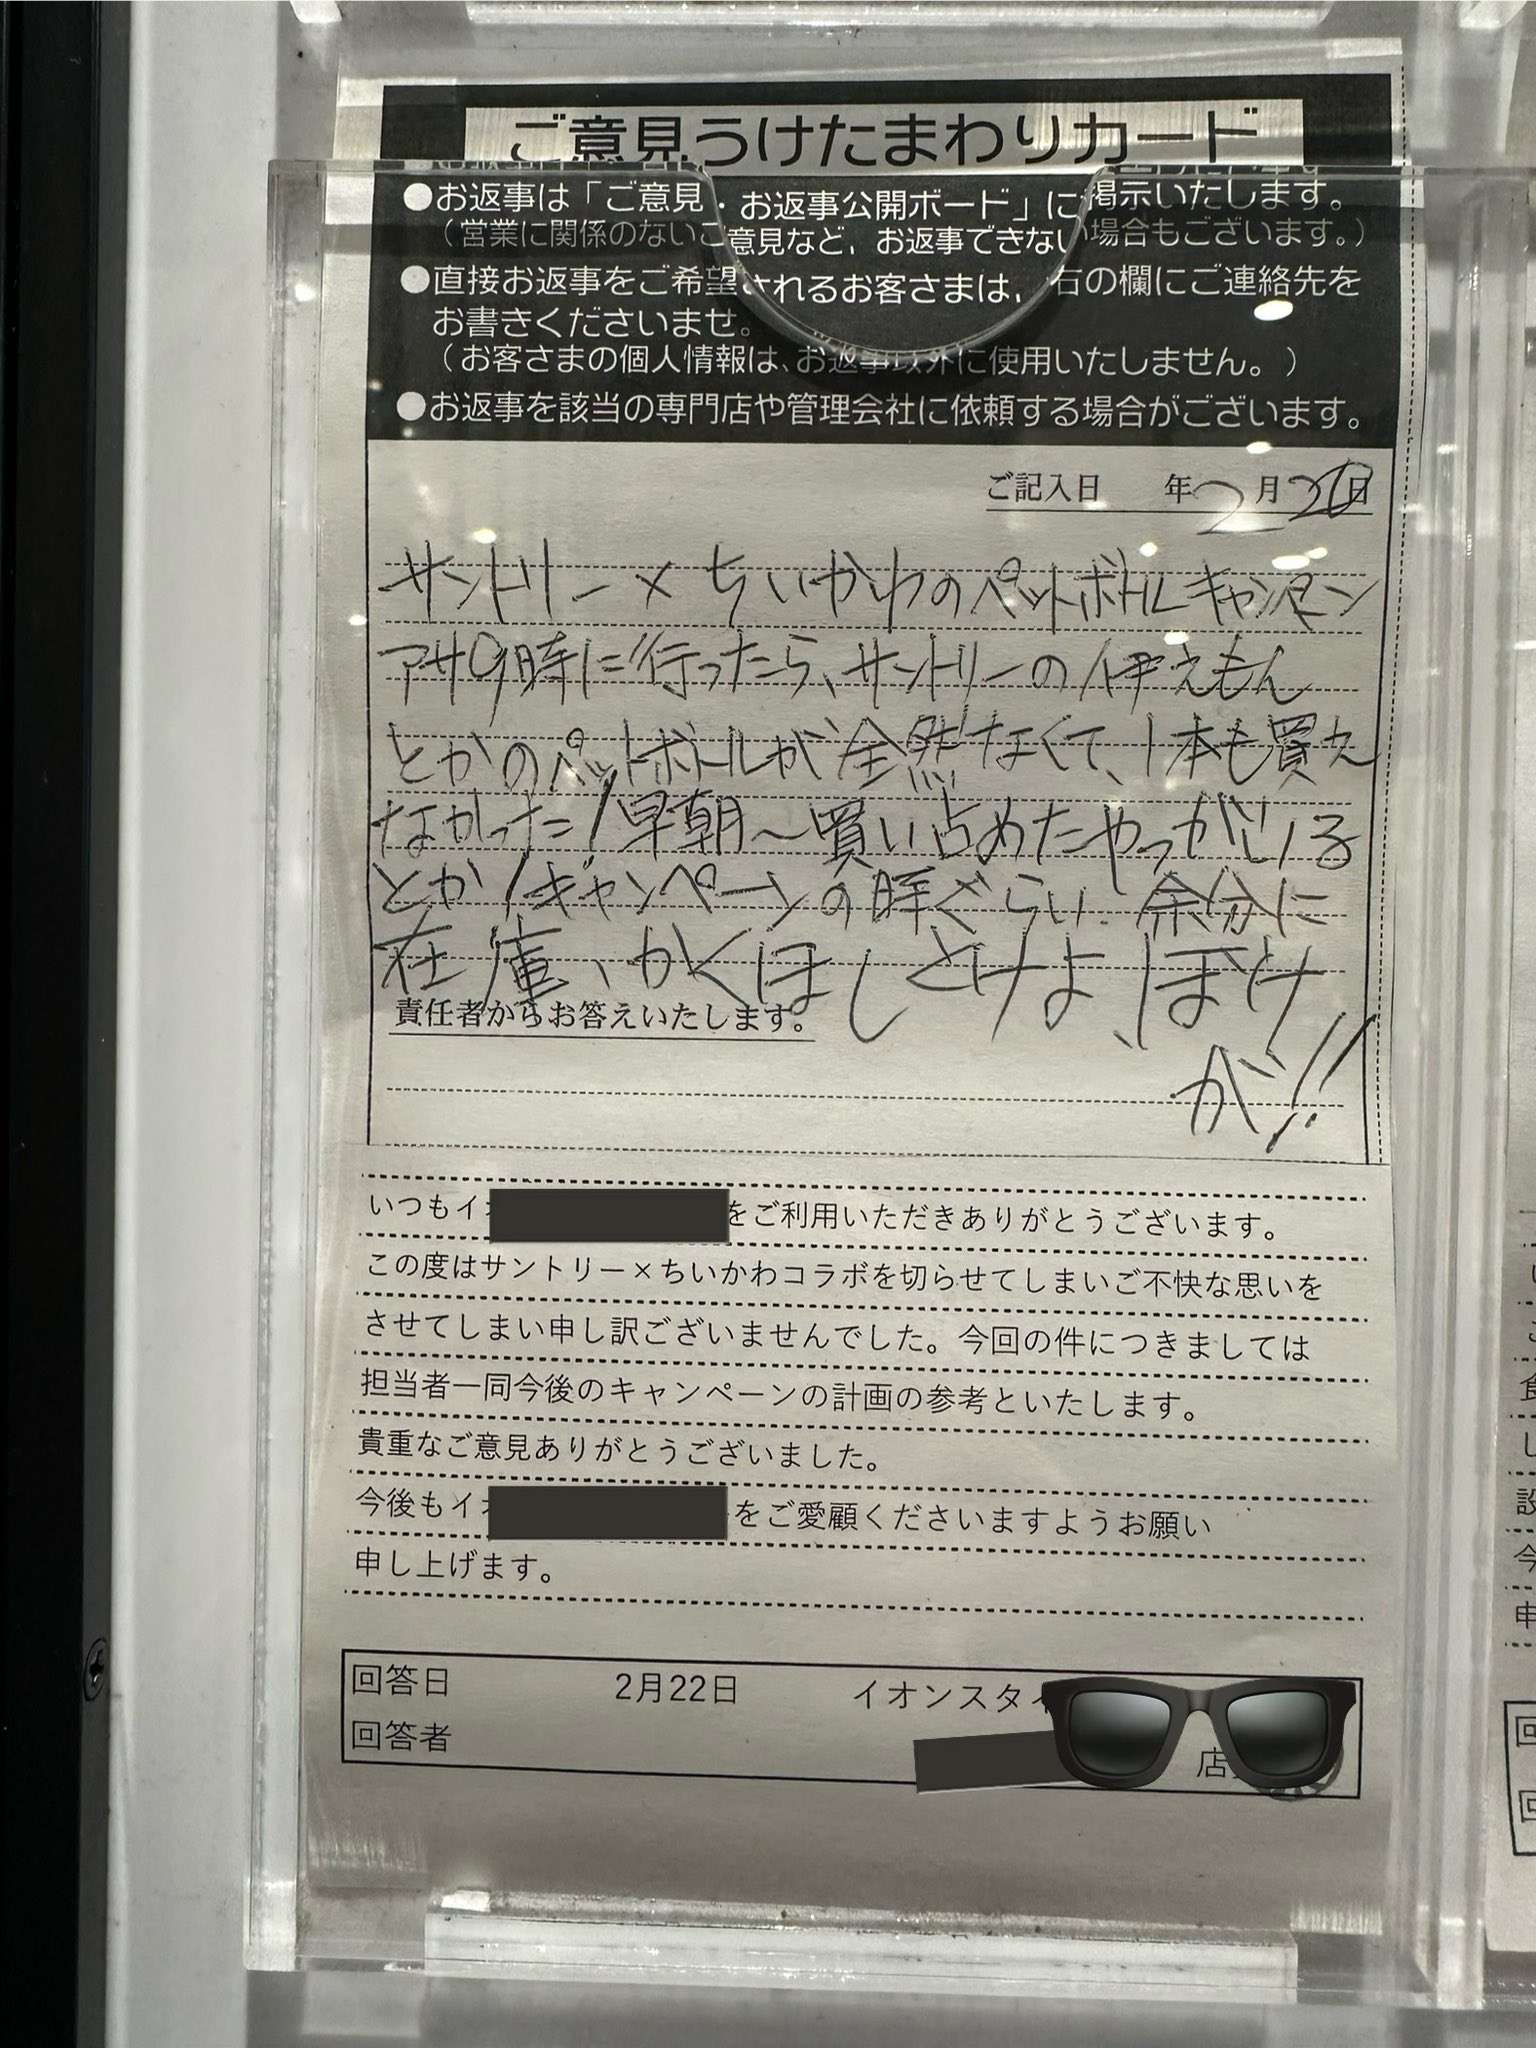 ご意見うけたまわりカード
●お返事は「ご意見・お返事公開ボード」に掲示いたします。
（営業に関係のないご意見など、お返事できない場合もございます。）
●直接お返事をご希望されるお客さまは、右の欄にご連絡先を
お書きくださいませ。
（お客さまの個人情報は、お返事以外に使用いたしません。）
●お返事を該当の専門店や管理会社に依頼する場合がございます。
ご記入日 年2月20日
サントリー×ちいかわのペットボトルキャンペーン
アサ9時に行ったら、サントリーの伊えもん
とかのペットボトルが全然なくて、1本も買え
なかった!早朝〜買い占めたやつがいる
とか!キャンペーンの時ぐらい、余分に
在庫、かくほしとけよ、ぼけ
が!!
責任者からお答えいたします。
いつもイオ をご利用いただきありがとうございます。
この度はサントリー×ちいかわコラボを切らせてしまいご不快な思いを
させてしまい申し訳ございませんでした。今回の件につきましては
担当者一同今後のキャンペーンの計画の参考といたします。
貴重なご意見ありがとうございました。
今後もイオ をご愛顧くださいますようお願い
申し上げます。
回答日 2月22日 イオンスタイ
回答者 店